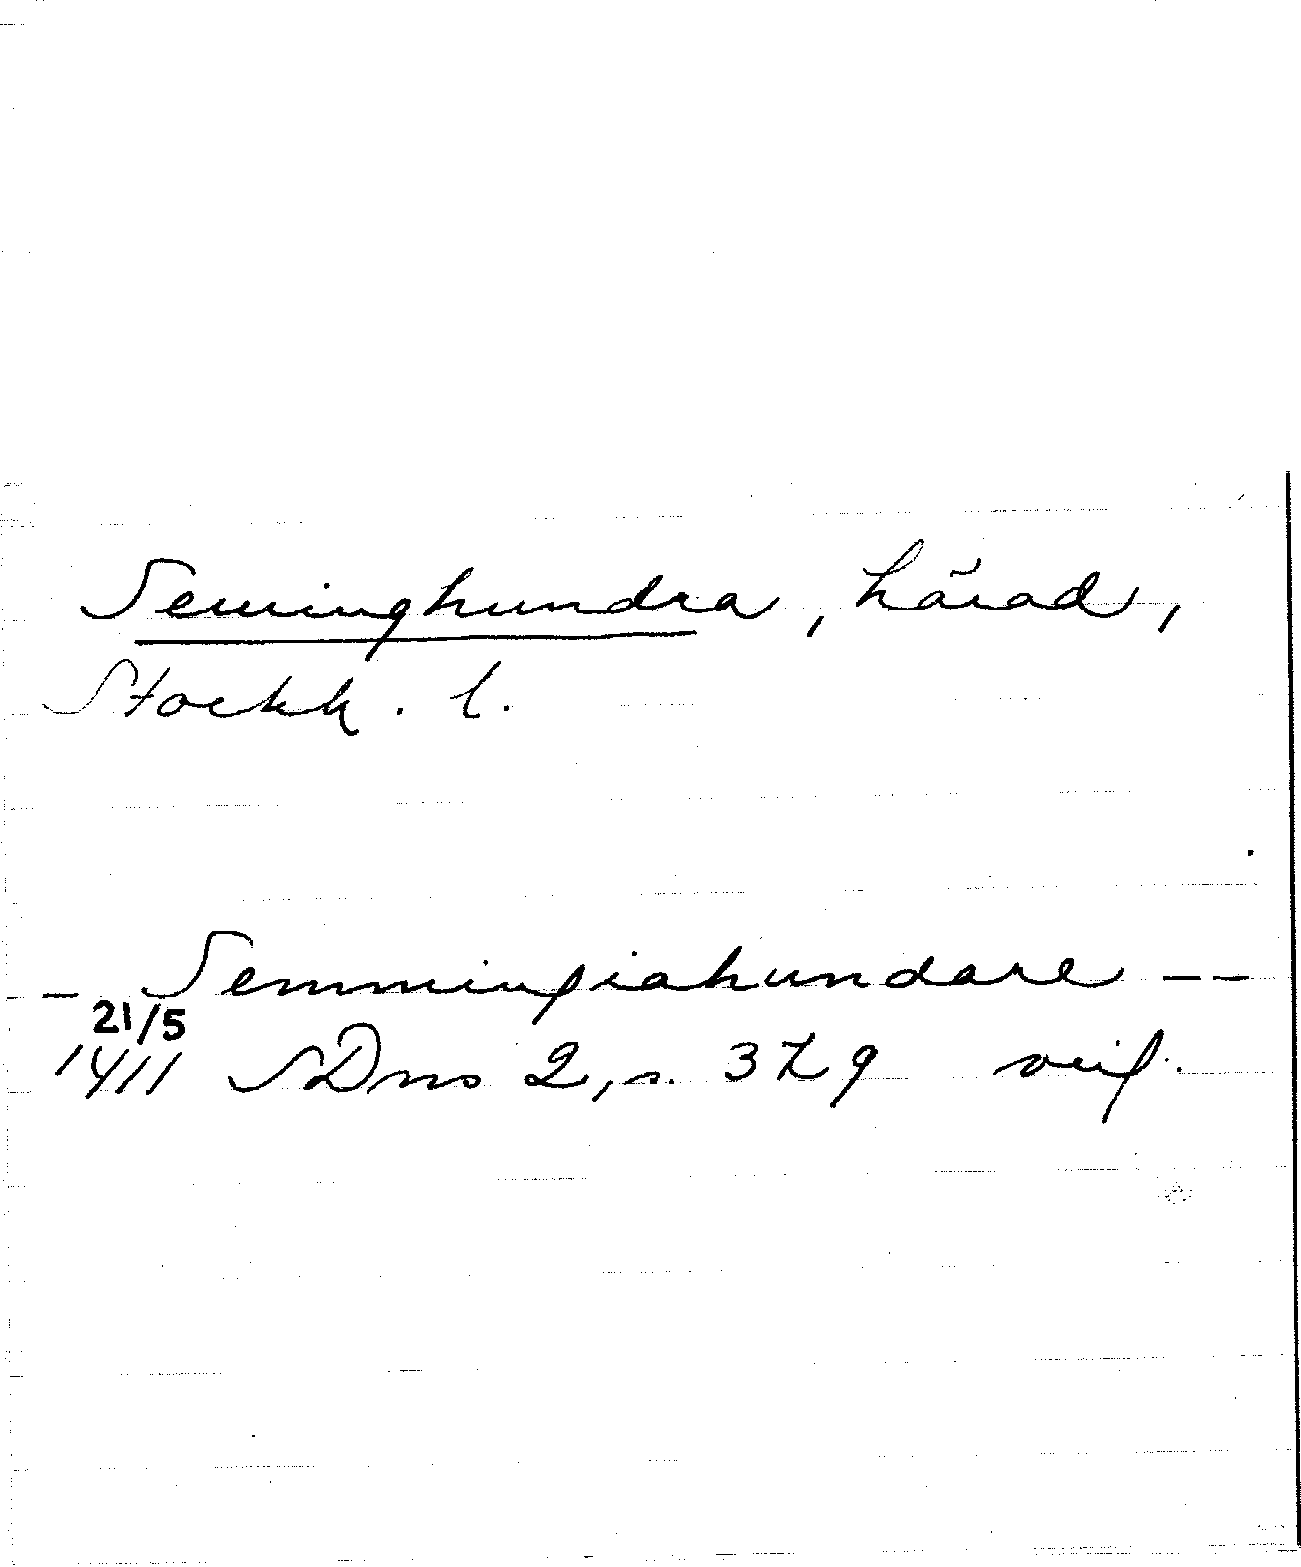 Seminghundra, härad,
Stockh. l.
– Semmingiahundare – –
21/5
1411 SDns 2, s. 379 orig.